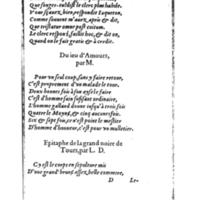 Que singer. rabist le clerc plus habile.
Comme souuent m'auez, apris & dit,
Le clerc respond, sailez hoc, & dit on,
Quand on le fait gratis & à credit.
Du ieu d'Amours,
par M.
Pour vn seul coup, sans y faire retour,
C'est proprement d'vn malade le tour.
Deux bonnes fois à son aise le faire
C'est d'homme sain suffisant ordinaire,
L'homme galland donne iusqu'à trois fois
Quatre le Moyne, & cinq aucunesfois.
Six & sept fois, ce n'est point le mestier
D'homme d'honneur, c'est pour vn muletier.
Epitaphe de la grand noire de
Tours, par L. D.
Cy est le corps en sepulture mis
D'vne grand' brune assez, belle commere,
D Le-